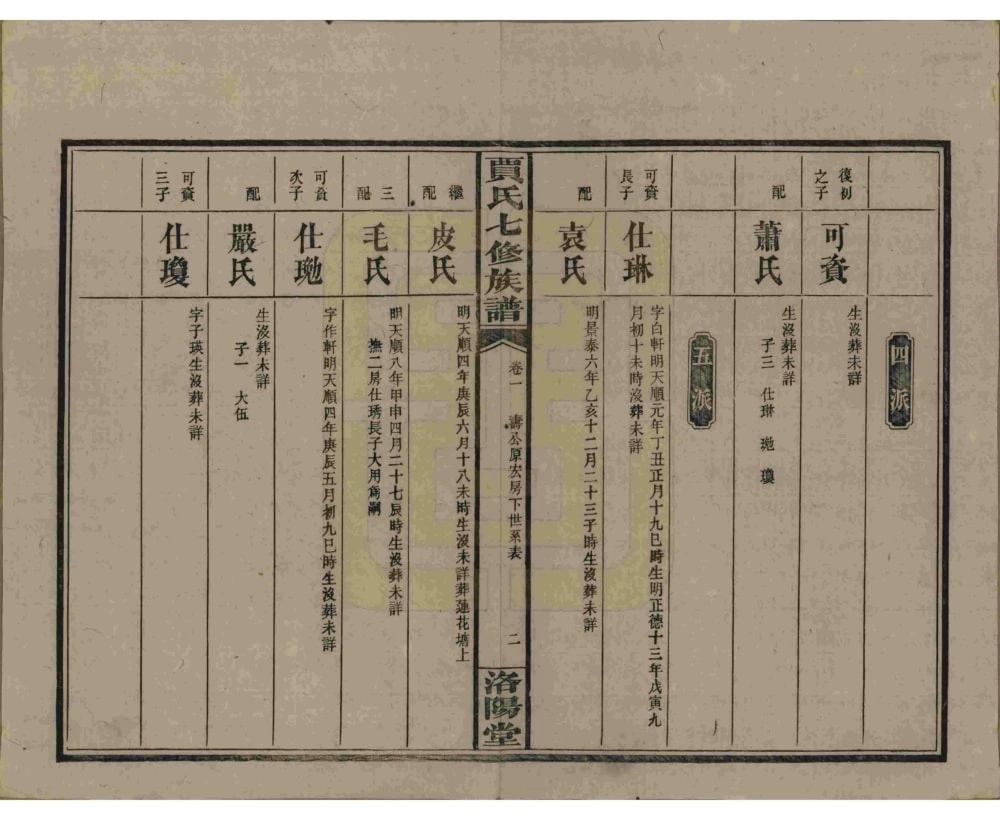 四派
復初之子
可賚
生沒葬未詳
配
蕭氏
生沒葬未詳
子三 仕琳 珋 瓊
五派
可賚長子
仕琳
字白軒明天順元年丁丑正月十九巳時生明正德十三年戊寅九
月初十未時沒葬未詳
配
袁氏
明景泰六年乙亥十二月二十三子時生沒葬未詳
賈氏七修族譜
卷一
壽公原宏房下世系表
二
洛陽堂
繼配
皮氏
明天順四年庚辰六月十八未時生沒未詳葬蓮花塘上
三配
毛氏
明天順八年甲申四月二十七辰時生沒葬未詳
撫二房仕琇長子大用爲嗣
可賚次子
仕
字作軒明天順四年庚辰五月初九巳時生沒葬未詳
配
嚴氏
生沒葬未詳
子一 大伍
可賚三子
仕瓊
字子瑛生沒葬未詳